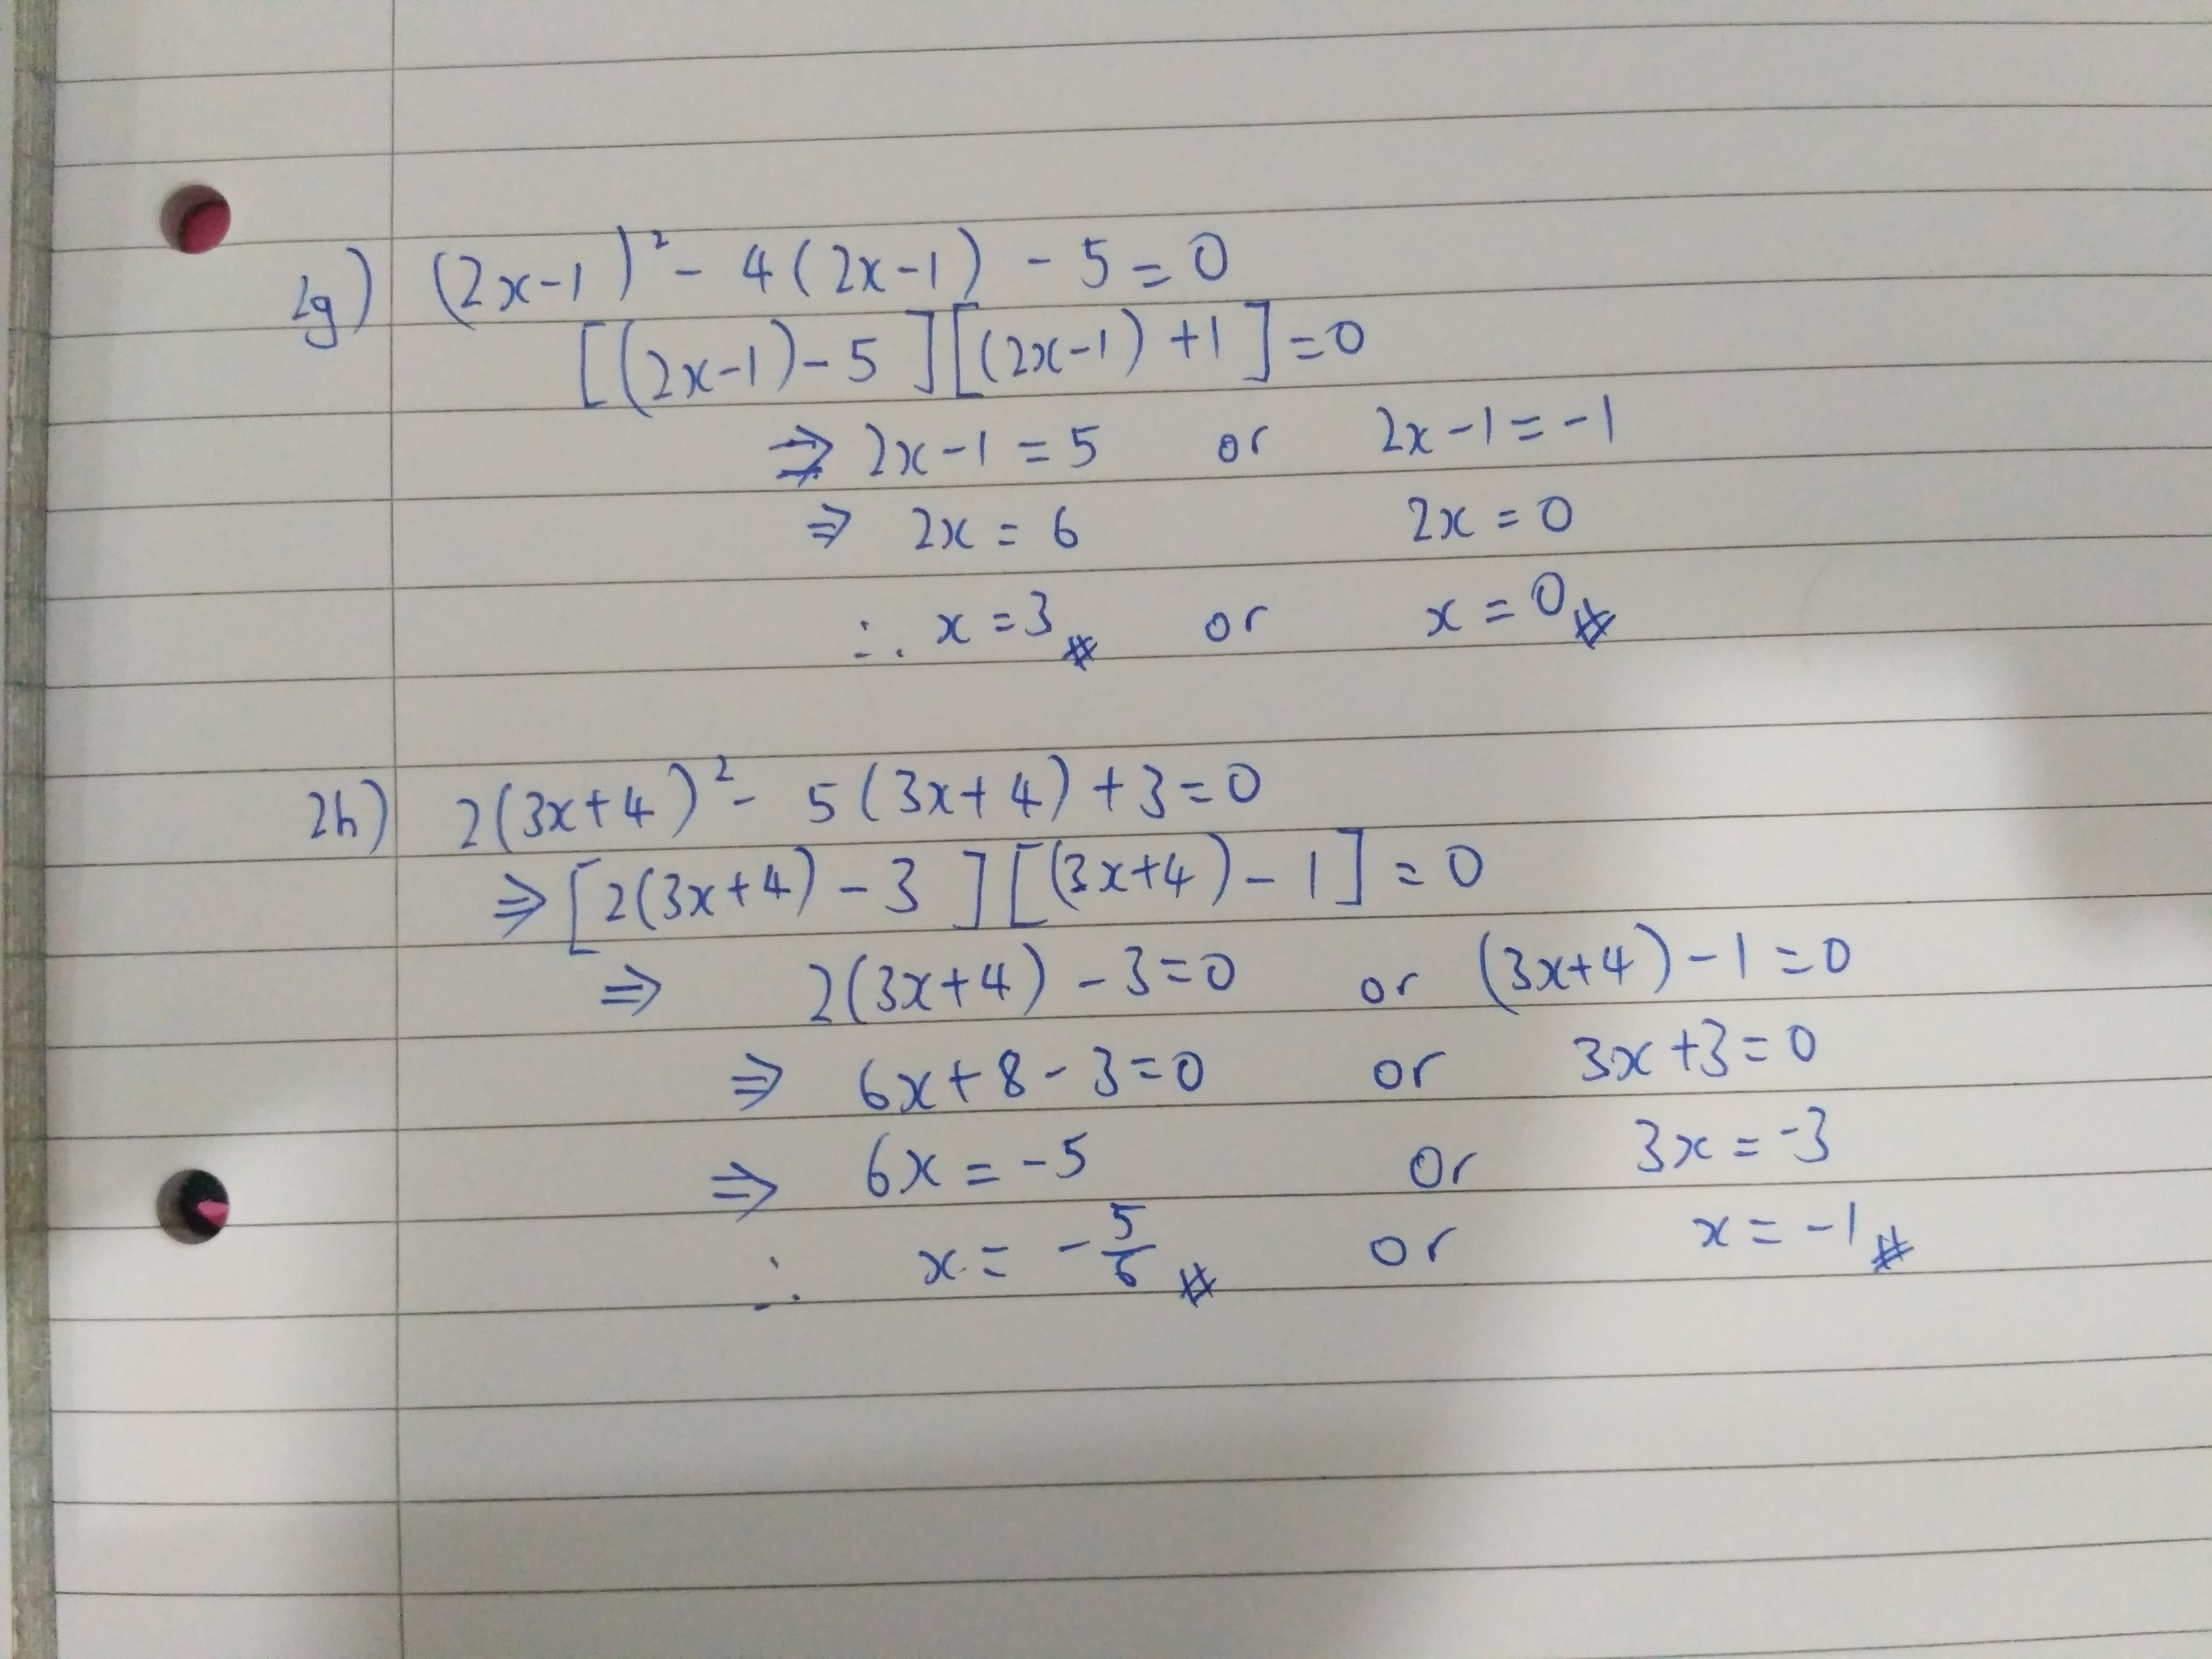 2g) (2x-1)² - 4(2x-1) - 5 = 0
[(2x-1) - 5][(2x-1) + 1] = 0
⇒ 2x-1 = 5 or 2x-1 = -1
⇒ 2x = 6 2x = 0
∴ x = 3 # or x = 0 #
2h) 2(3x+4)² - 5(3x+4) + 3 = 0
⇒ [2(3x+4) - 3][(3x+4) - 1] = 0
⇒ 2(3x+4) - 3 = 0 or (3x+4) - 1 = 0
⇒ 6x + 8 - 3 = 0 or 3x + 3 = 0
⇒ 6x = -5 or 3x = -3
∴ x = -5/6 # or x = -1 #